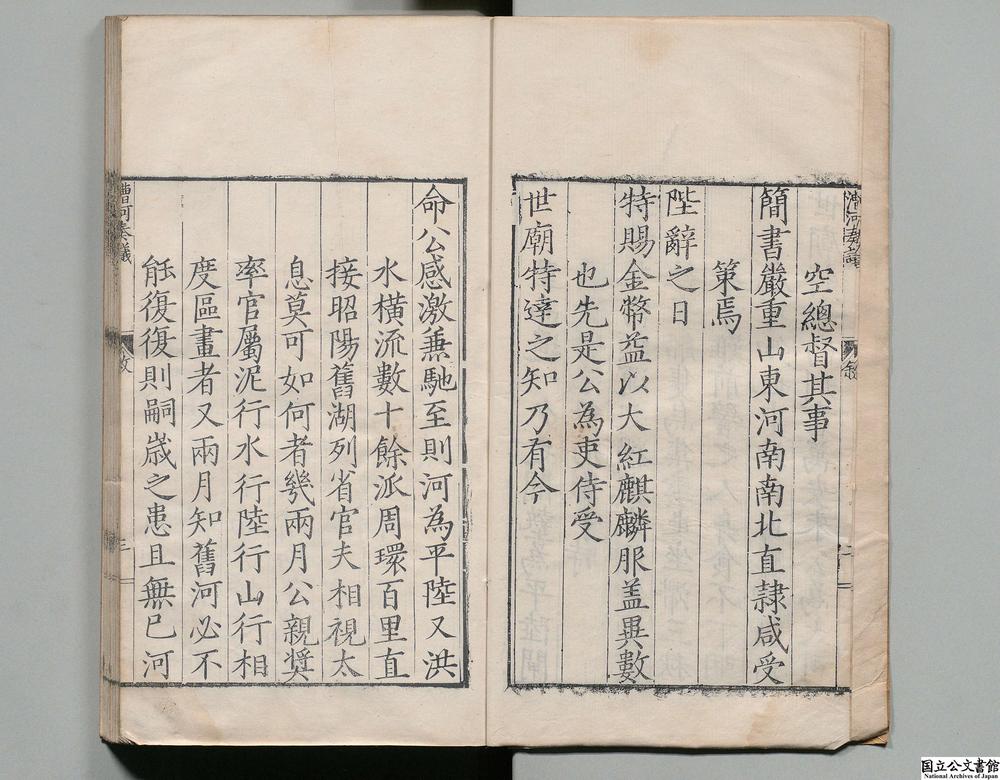 空總督其事
簡書嚴重山東河南南北直隸咸受
策焉
陛辭之日
特賜金幣益以大紅麒麟服盖異數
也先是公為吏侍受
世廟特達之知乃有今
命公感激兼馳至則河為平陸又洪
水橫流數十餘派周環百里直
接昭陽舊湖列省官夫相視太
息莫可如何者幾兩月公親奬
率官屬泥行水行陸行山行相
度區畫者又兩月知舊河必不
能復復則嗣歲之患且無已河
漕河奏議
三
国立公文書館
National Archives of Japan